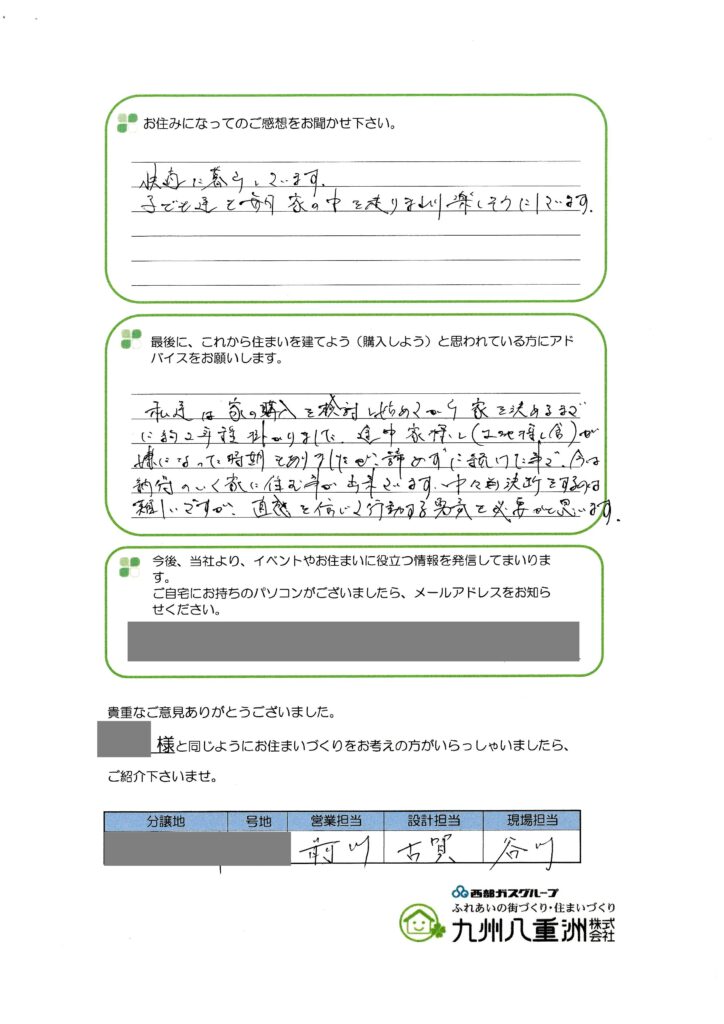 お住みになってのご感想をお聞かせ下さい。
快適に暮らしています。
子ども達も毎日家の中を走りまわり楽しそうにしています。
最後に、これから住まいを建てよう（購入しよう）と思われている方にアド
バイスをお願いします。
私達は家の購入を検討し始めてから家を決めるまで
に約2年程掛かりました。途中家探し(土地探し含)が
嫌になった時期もありましたが、諦めずに続けた事で、今は
納得のいく家に住む事が出来ています。中々決断をするのは
難しいですが、直感を信じて行動する勇気も必要かと思います。
今後、当社より、イベントやお住まいに役立つ情報を発信してまいりま
す。
ご自宅にお持ちのパソコンがございましたら、メールアドレスをお知ら
せください。
貴重なご意見ありがとうございました。
様と同じようにお住まいづくりをお考えの方がいらっしゃいましたら、
ご紹介下さいませ。
分譲地 号地 営業担当 設計担当 現場担当
前川 古賀 谷川
西部ガスグループ
ふれあいの街づくり・住まいづくり
九州八重洲株式会社